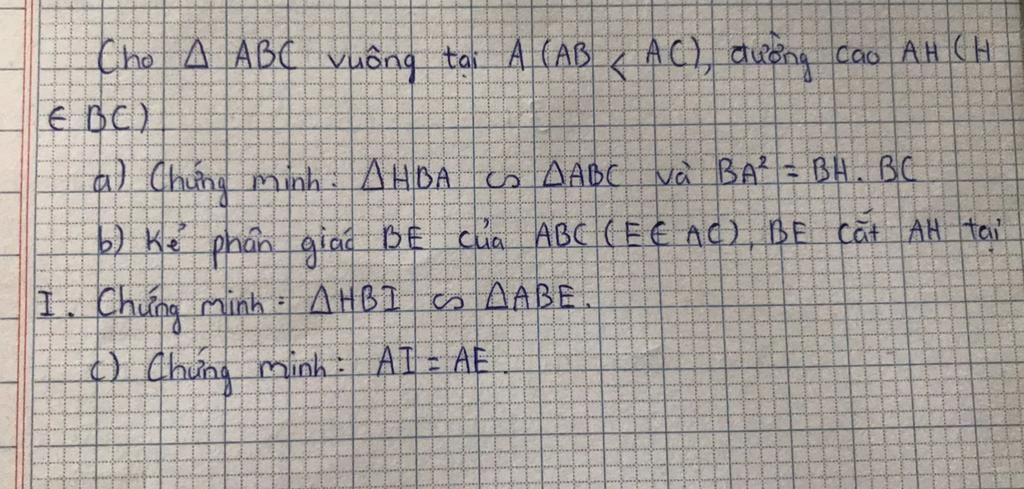 Cho Δ ABC vuông tại A (AB < AC), đường cao AH (H
∈ BC)
a) Chứng minh: ΔHBA ∽ ΔABC và BA² = BH. BC
b) Kẻ phân giác BE của ABC (E∈ AC), BE cắt AH tại
I. Chứng minh: ΔHBI ∽ ΔABE.
c) Chứng minh: AI = AE.